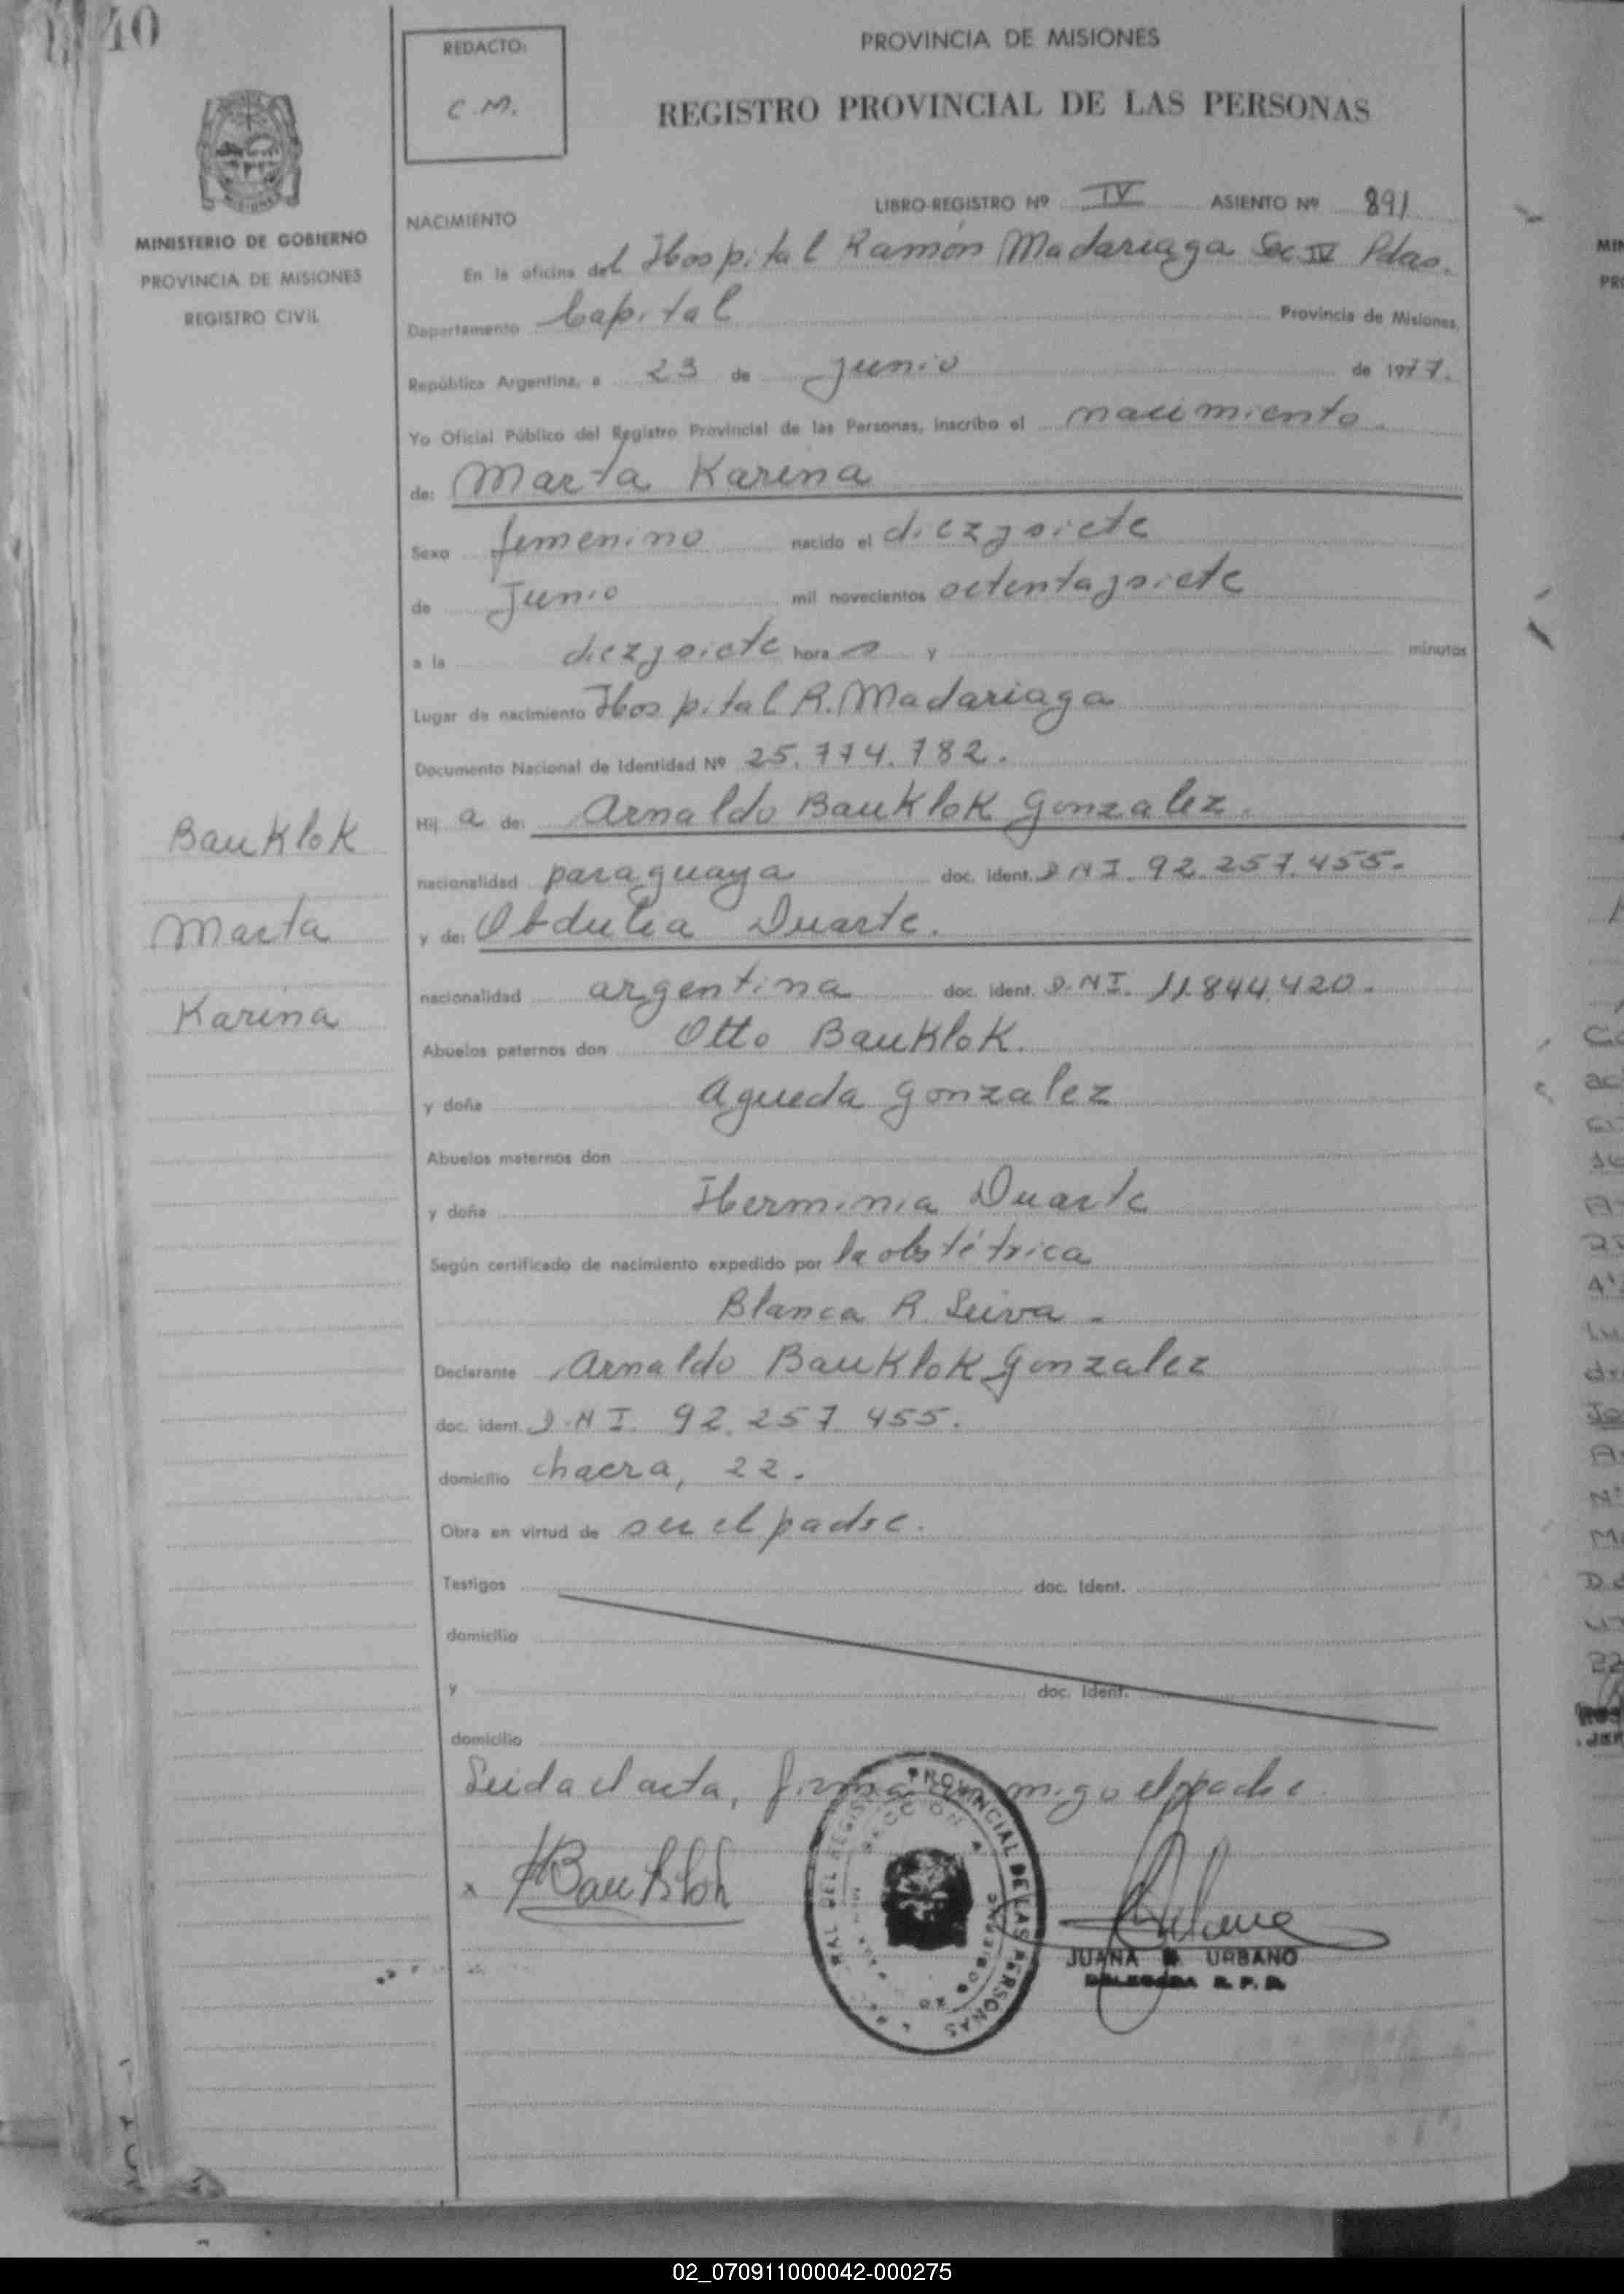 40
REDACTO:
C.M.
PROVINCIA DE MISIONES
REGISTRO PROVINCIAL DE LAS PERSONAS
MINISTERIO DE GOBIERNO
PROVINCIA DE MISIONES
REGISTRO CIVIL
LIBRO-REGISTRO Nº IV ASIENTO Nº 891
NACIMIENTO
En la oficina del Hospital Ramón Madariaga Sec IV Pdas.
Departamento Capital Provincia de Misiones,
República Argentina, a 23 de junio de 1977.
Yo Oficial Público del Registro Provincial de las Personas, inscribo el nacimiento.
de: Marta Karina
Sexo femenino nacido el diezysiete
de Junio mil novecientos setentaysiete
a la diezysiete horas y minutos
Lugar de nacimiento Hospital R. Madariaga
Documento Nacional de Identidad Nº 25.774.782.
Hij a de: Arnaldo Bauklok Gonzalez.
nacionalidad paraguaya doc. ident. DNI. 92.257.455.
y de: Obdulia Duarte.
nacionalidad argentina doc. ident. D.N.I. 11.844.420.
Bauklok
Marta
Karina
Abuelos paternos don Otto Bauklok.
y doña Agueda Gonzalez
Abuelos maternos don
y doña Herminia Duarte
Según certificado de nacimiento expedido por la obstétrica
Blanca R. Leiva -
Declarante Arnaldo Bauklok Gonzalez
doc. ident. D.N.I. 92.257.455.
domicilio chacra, 22.
Obra en virtud de ser el padre.
Testigos doc. Ident.
domicilio
y doc. Ident.
domicilio
Leida el acta, firma conmigo el padre.
x Bauklok
PROVINCIAL DE LAS PERSONAS
JUANA URBANO
DELEGADA R. P. P.
02_070911000042-000275